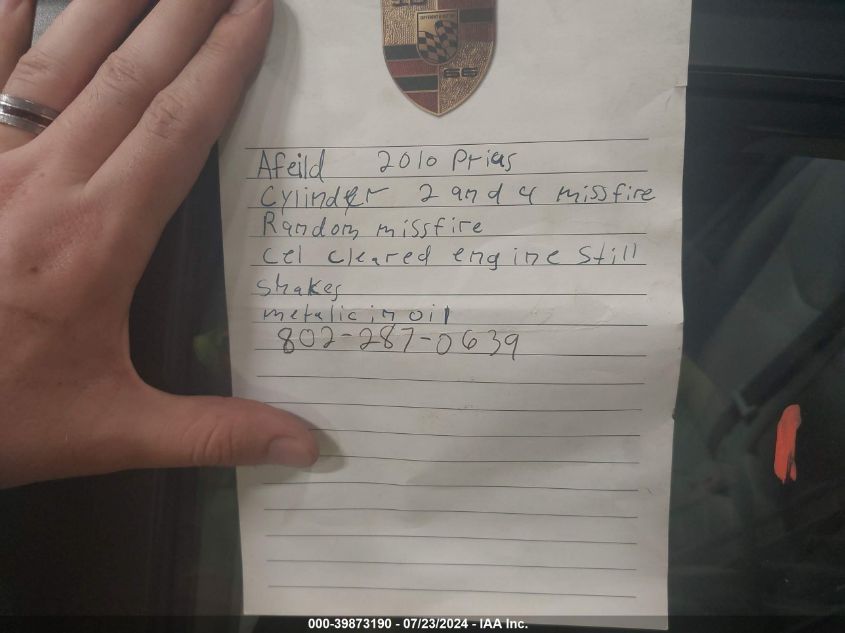 66
Afeild 2010 Prius
Cylinder 2 and 4 missfire
Random missfire
Cel cleared engine still
shakes
metalic in oil
802-287-0639
000-39873190 - 07/23/2024 - IAA Inc.